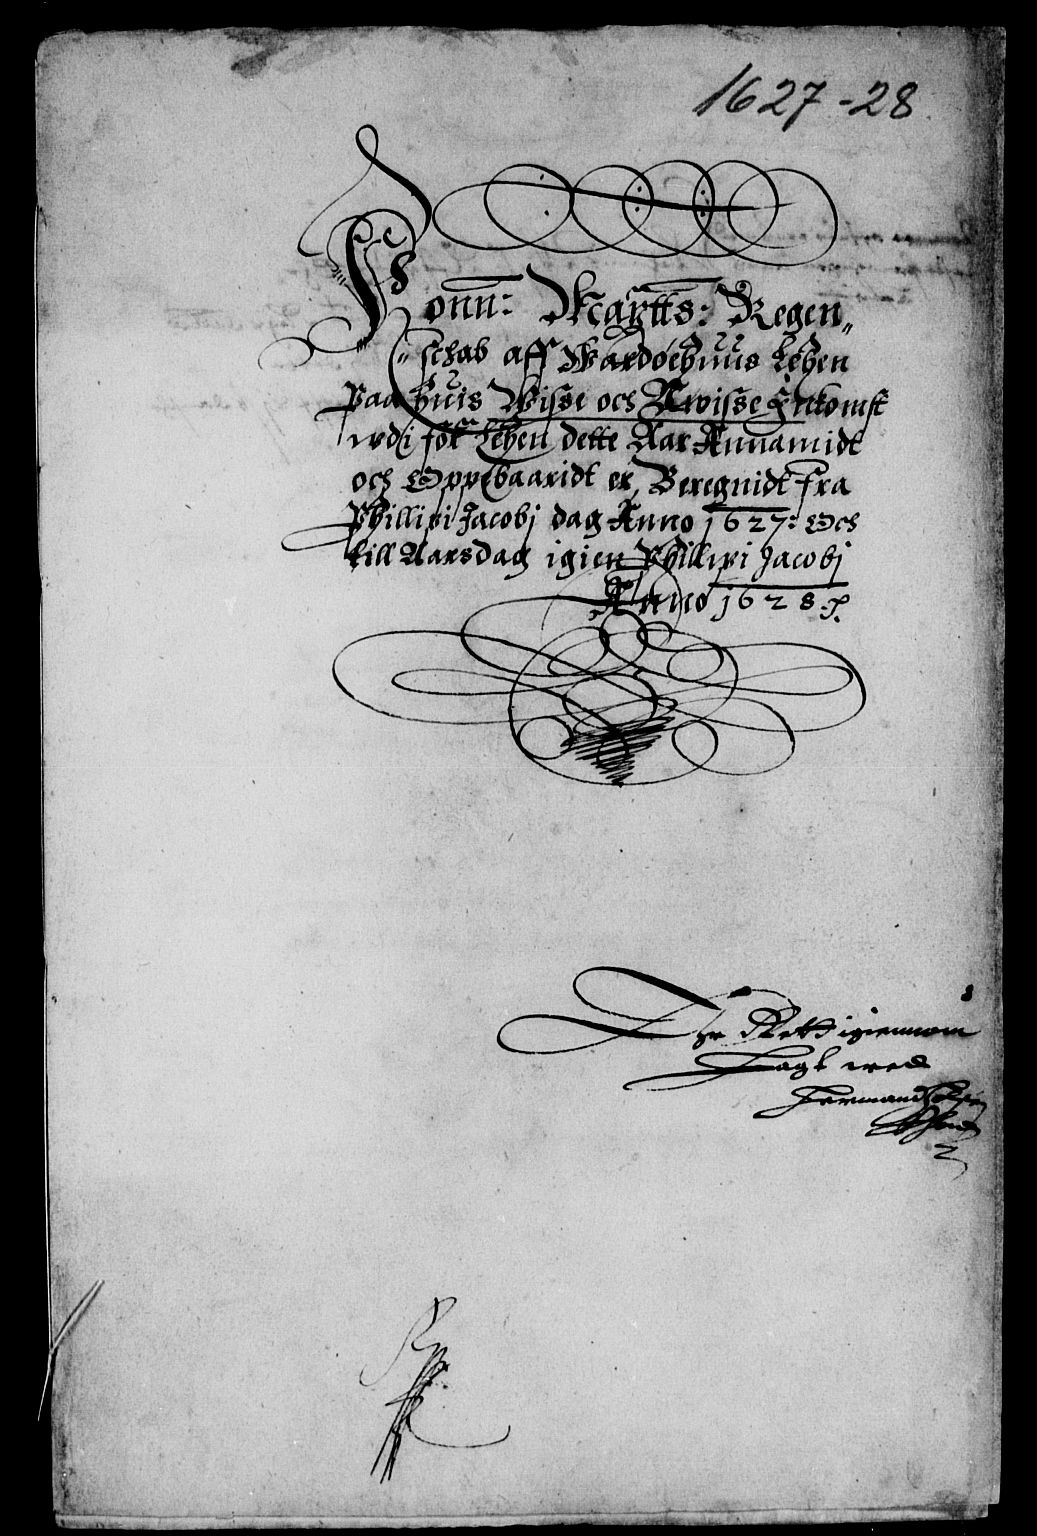 1627-28
Konn: Maÿtts: Regen„
„schab aff Wardøehuus Lehen
Paa huis Wisse och Uwisse Inkomst
udi för Lehen dette Aar Annamidt
och Oppebaaridt er, Beregnidt fra
Phillipi Jacobj dag Anno 1627: Och
till Aarsdag igien Phillipi Jacobj
Anno 1628.
Er Rett igiennom
lagt wed
Hermand